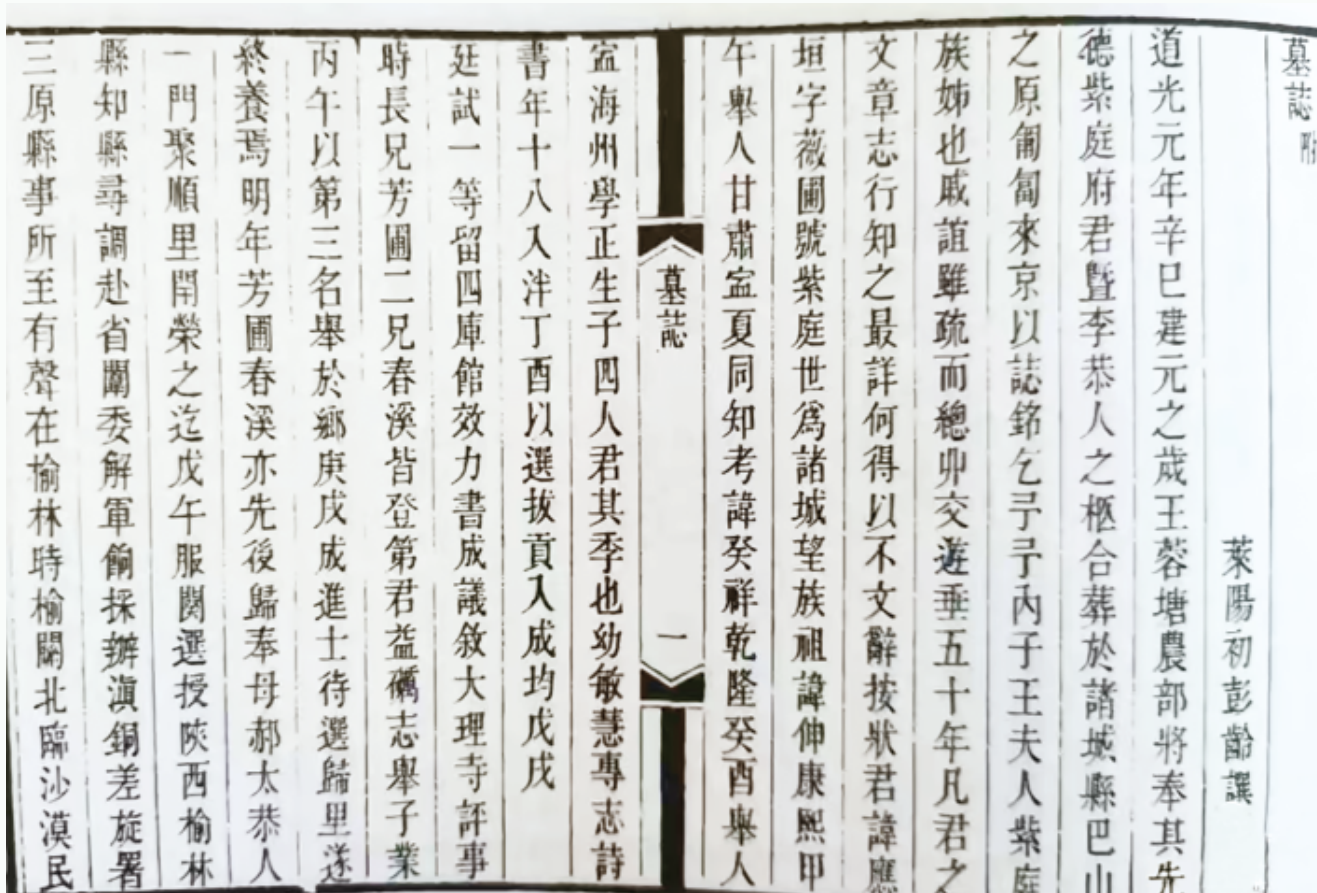 墓誌 附
萊陽初彭齡譔
道光元年辛巳建元之歲王蓉塘農部將奉其先
德紫庭府君暨李恭人之柩合葬於諸城縣巴山
之原匍匐來京以誌銘乞予予內子王夫人紫庭
族姊也戚誼雖疏而總丱交遊垂五十年凡君之
文章志行知之最詳何得以不文辭按狀君諱應
垣字薇圃號紫庭世爲諸城望族祖諱伸康熙甲
午舉人甘肅寍夏同知考諱癸祥乾隆癸酉舉人
墓誌 一
寍海州學正生子四人君其季也幼敏慧專志詩
書年十八入泮丁酉以選拔貢入成均戊戌
廷試一等留四庫館效力書成議敘大理寺評事
時長兄芳圃二兄春溪皆登第君益礪志舉子業
丙午以第三名舉於鄉庚戌成進士待選歸里遂
終養焉明年芳圃春溪亦先後歸奉母郝太恭人
一門聚順里閈榮之迄戊午服闋選授陝西榆林
縣知縣尋調赴省闈委解軍餉採辦滇銅差旋署
三原縣事所至有聲在榆林時榆關北臨沙漠民